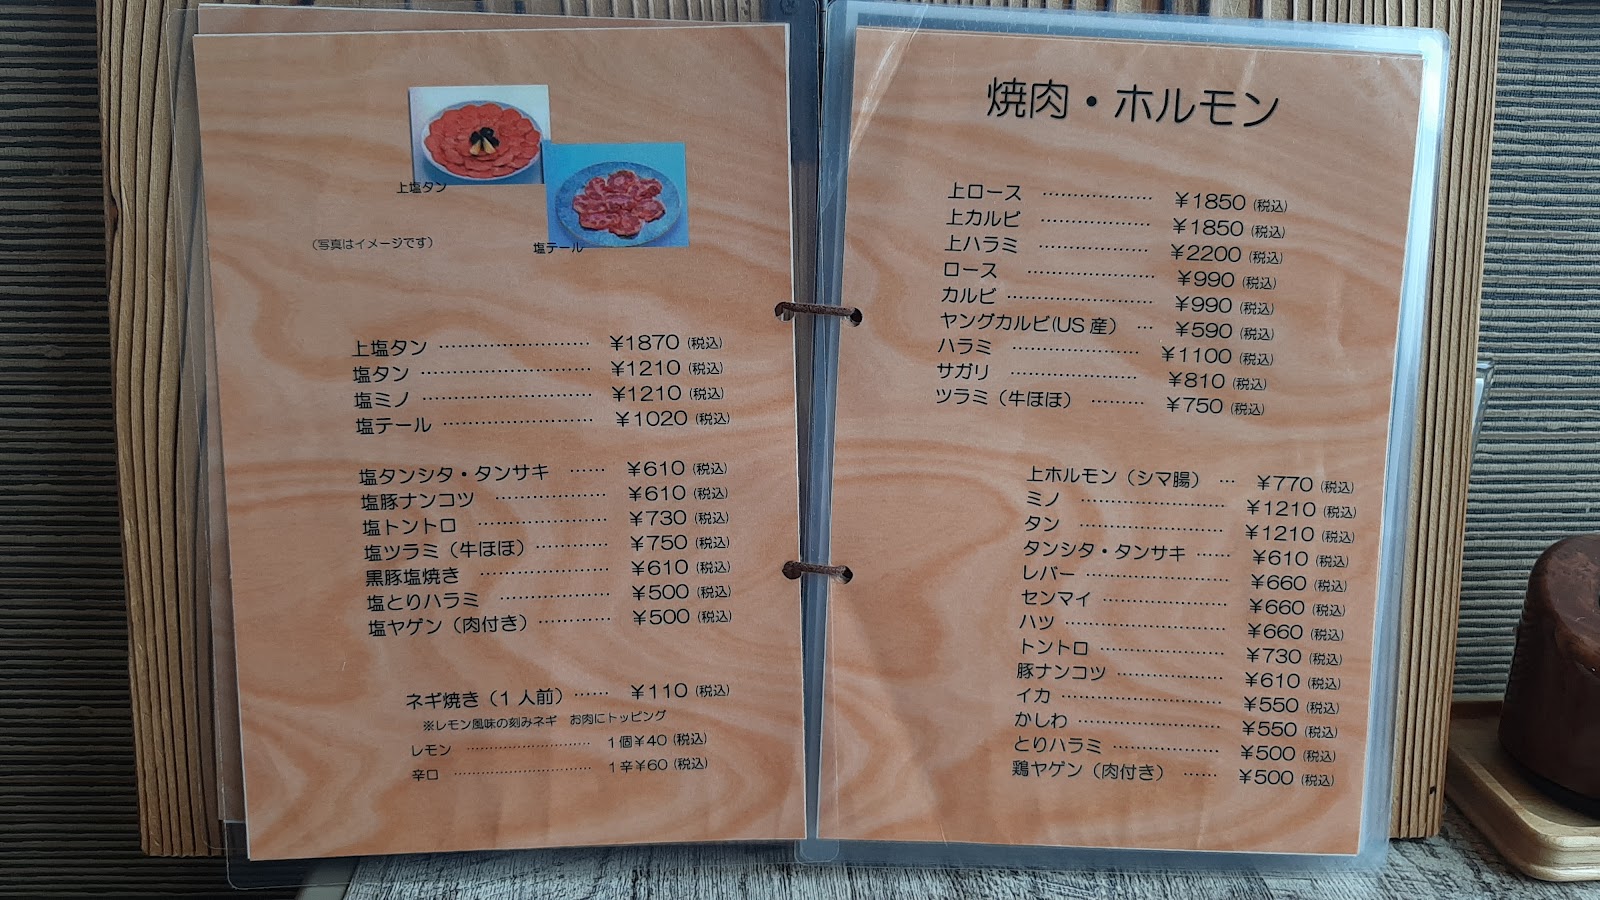 上塩タン
(写真はイメージです)
塩テール
上塩タン ………………… ¥1870 (税込)
塩タン ………………… ¥1210 (税込)
塩ミノ ………………… ¥1210 (税込)
塩テール ………………… ¥1020 (税込)
塩タンシタ・タンサキ …… ¥610 (税込)
塩豚ナンコツ ………………… ¥610 (税込)
塩トントロ ………………… ¥730 (税込)
塩ツラミ（牛ほほ）………… ¥750 (税込)
黒豚塩焼き ………………… ¥610 (税込)
塩とりハラミ ………………… ¥500 (税込)
塩ヤゲン（肉付き）………… ¥500 (税込)
ネギ焼き（1人前）…… ¥110 (税込)
※レモン風味の刻みネギ　お肉にトッピング
レモン ………………… 1個¥40 (税込)
辛口 ………………… 1辛¥60 (税込)
焼肉・ホルモン
上ロース ………………… ¥1850 (税込)
上カルビ ………………… ¥1850 (税込)
上ハラミ ………………… ¥2200 (税込)
ロース ………………… ¥990 (税込)
カルビ ………………… ¥990 (税込)
ヤングカルビ(US産） … ¥590 (税込)
ハラミ ………………… ¥1100 (税込)
サガリ ………………… ¥810 (税込)
ツラミ（牛ほほ） ……… ¥750 (税込)
上ホルモン（シマ腸） … ¥770 (税込)
ミノ ………………… ¥1210 (税込)
タン ………………… ¥1210 (税込)
タンシタ・タンサキ …… ¥610 (税込)
レバー ………………… ¥660 (税込)
センマイ ………………… ¥660 (税込)
ハツ ………………… ¥660 (税込)
トントロ ………………… ¥730 (税込)
豚ナンコツ ………………… ¥610 (税込)
イカ ………………… ¥550 (税込)
かしわ ………………… ¥550 (税込)
とりハラミ ………………… ¥500 (税込)
鶏ヤゲン（肉付き） …… ¥500 (税込)